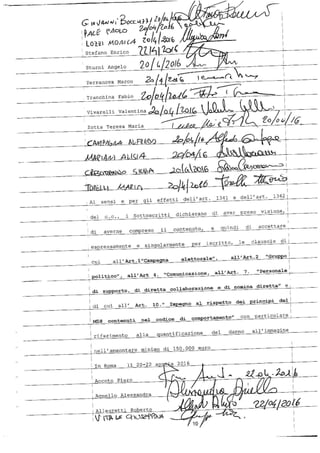 GIOVANNI BOCCUZZI 20/04/16
PACE PAOLO 20/04/2016
LOZZI MONICA 20/4/2016
Stefano Enrico 22/4/2016
Sturni Angelo 20/4/2016
Terranova Marco 20/4/2016
Tranchina Fabio 20/04/2016
Vivarelli Valentina 20/04/2016
Zotta Teresa Maria 20/04/16
CAMPAGNA ALFREDO 20/04/16
MARIANI ALISIA 20/04/16
CRESCIMANNO SILVIA 20/04/2016
TORELLI MARIA 20/4/2016
Ai sensi e per gli effetti dell'art. 1341 e dell'art. 1342
del c.c., i Sottoscritti dichiarano di aver preso visione,
di averne compreso il contenuto, e quindi di accettare
espressamente e singolarmente per iscritto, le clausole di
cui all'Art.1"Campagna elettorale", all'Art.2 "Gruppo
politico", all'Art 6. "Comunicazione, all'Art. 7. "Personale
di supporto, di diretta collaborazione e di nomina diretta" e,
di cui all' Art. 10." Impegno al rispetto dei principi del
M5S contenuti nel codice di comportamento" con particolare
riferimento alla quantificazione del danno all'immagine
nell'ammontare minimo di 150.000 euro
In Roma il 20-22 aprile 2016
Accoto Piero 22.04.2016
Agnello Alessandra
Allegretti Roberto 22/04/2016
VITALE GIUSEPPINA
10